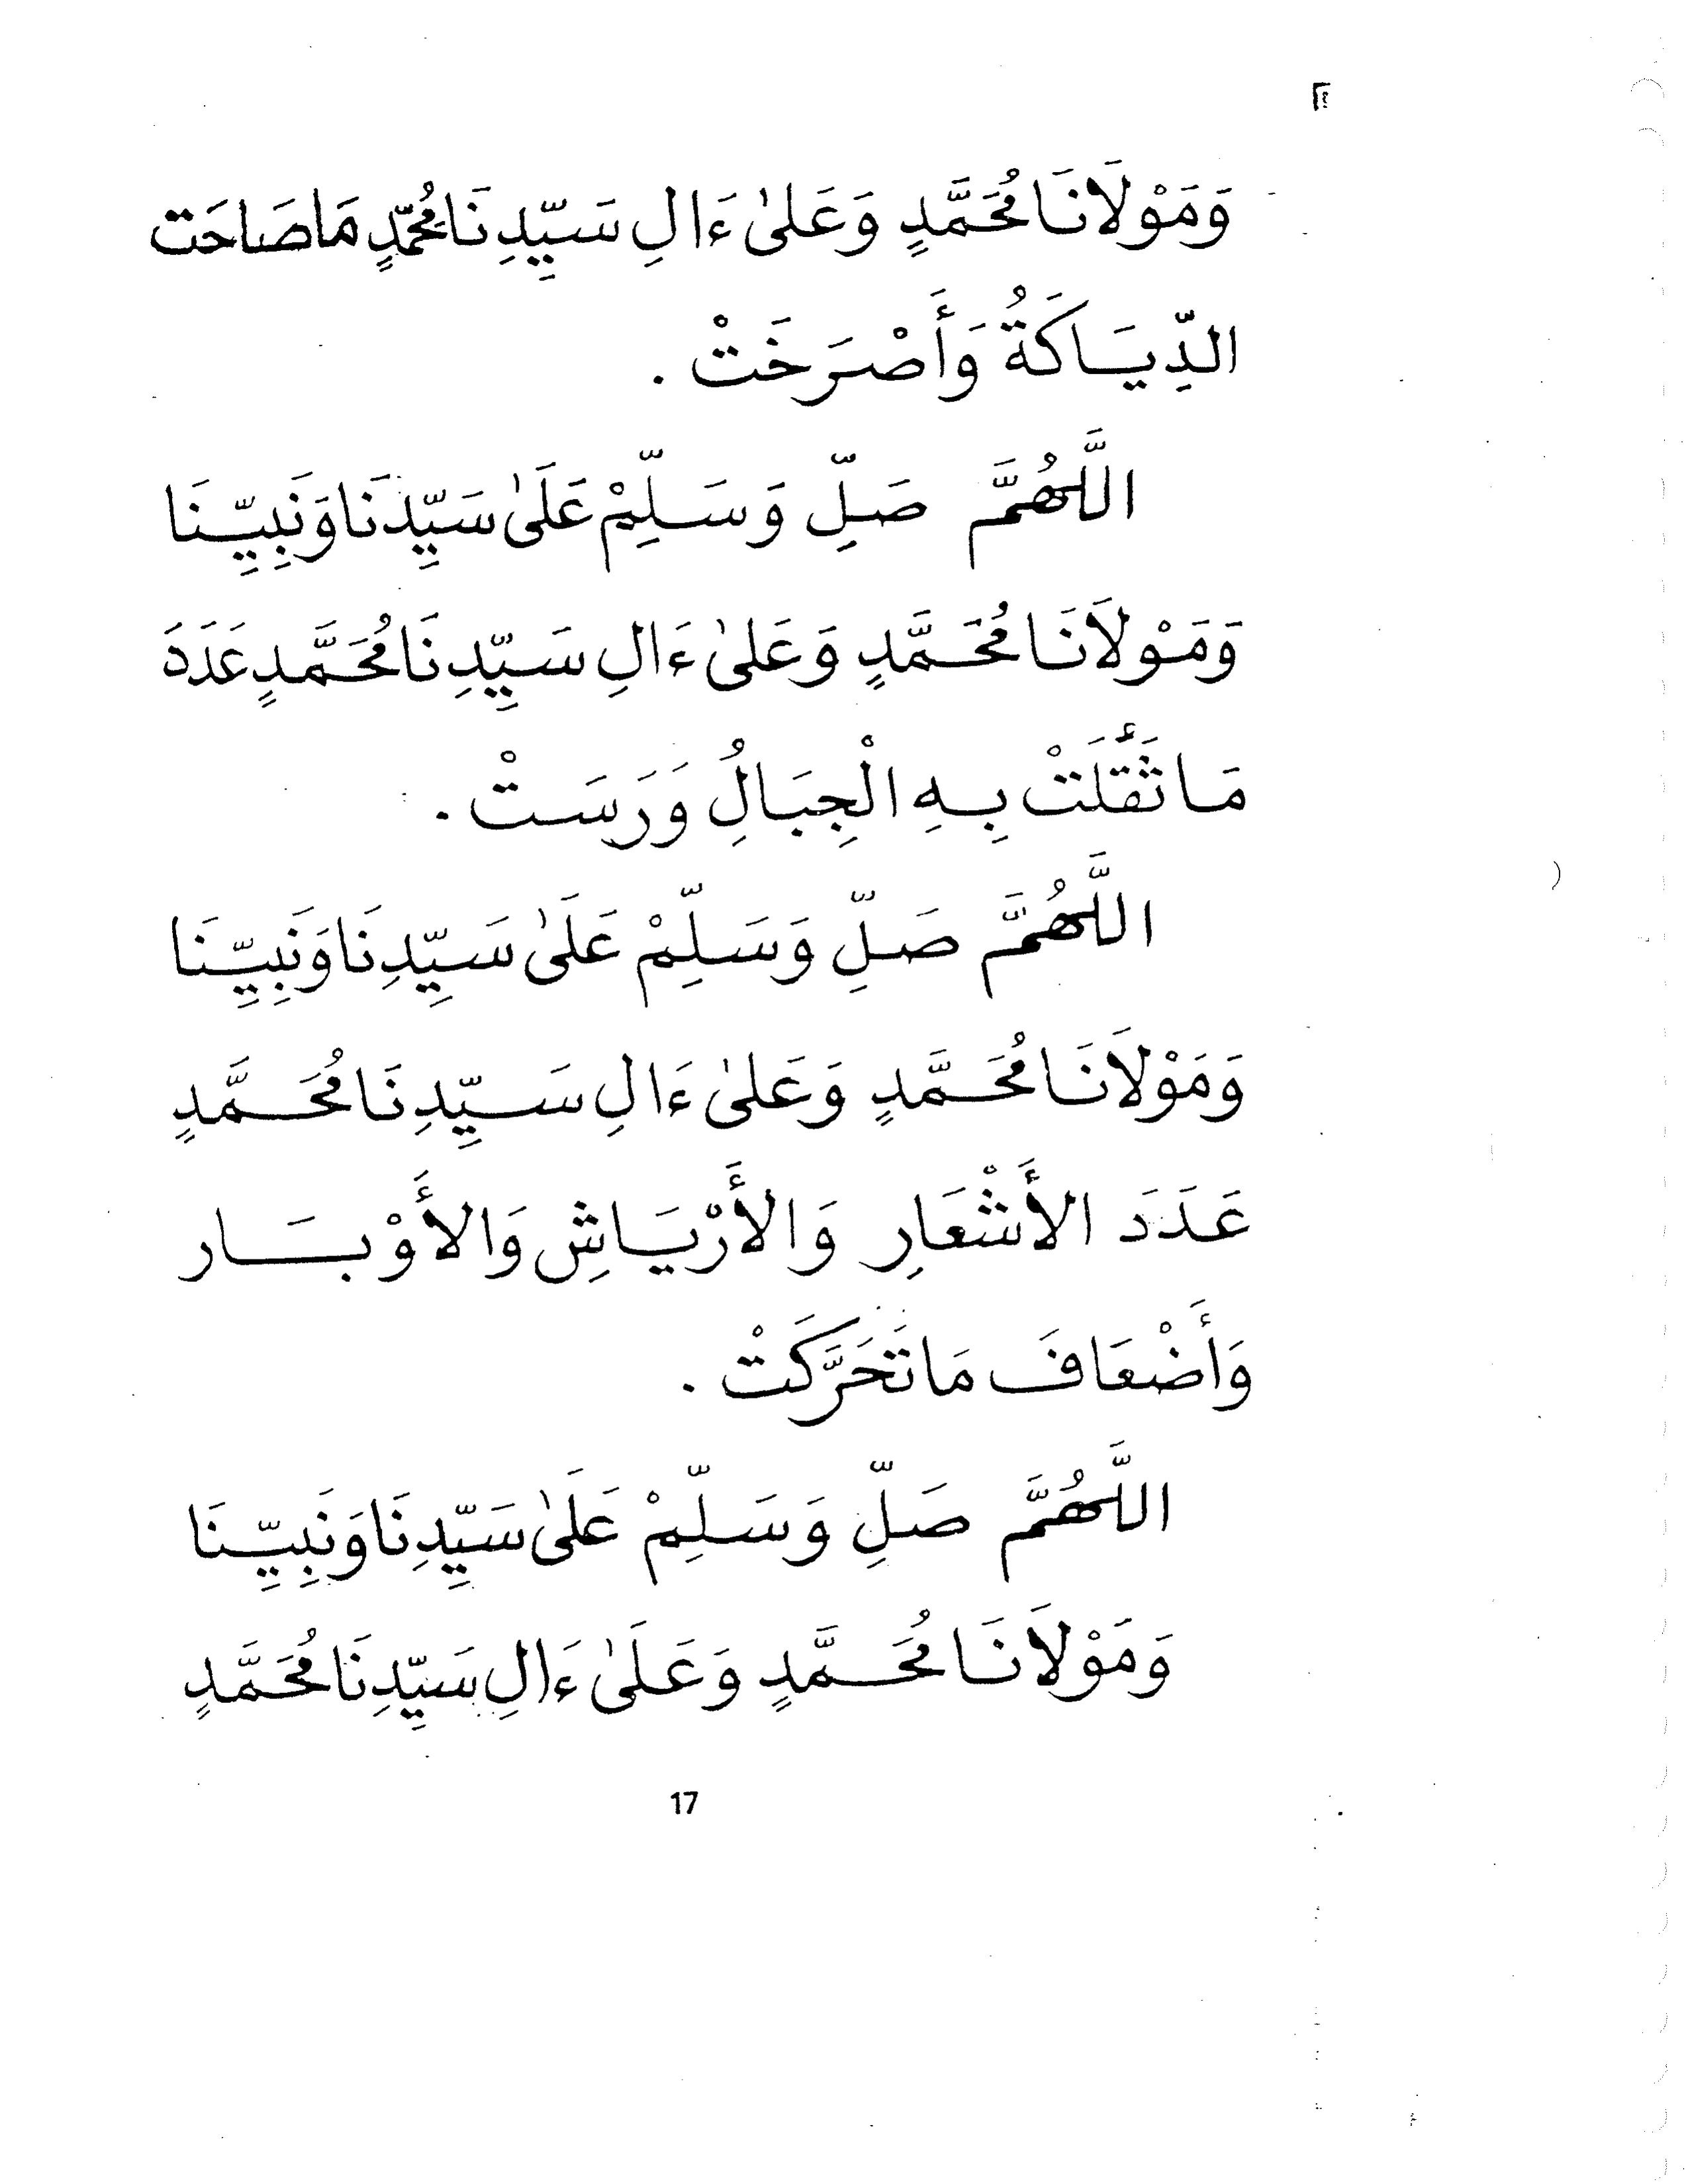 وَمَوْلَانَا مُحَمَّدٍ وَعَلىٰ ءَالِ سَيِّدِنَا مُحَمَّدٍ مَا صَاحَت
الدِّيَاكَةُ وَأَصْرَخَتْ .
اللَّهُمَّ صَلِّ وَسَلِّمْ عَلَىٰ سَيِّدِنَا وَنَبِيِّنَا
وَمَوْلَانَا مُحَمَّدٍ وَعَلىٰ ءَالِ سَيِّدِنَا مُحَمَّدٍ عَدَدَ
مَا تَثَقَّلَتْ بِهِ الْجِبَالُ وَرَسَتْ .
اللَّهُمَّ صَلِّ وَسَلِّمْ عَلَىٰ سَيِّدِنَا وَنَبِيِّنَا
وَمَوْلَانَا مُحَمَّدٍ وَعَلىٰ ءَالِ سَيِّدِنَا مُحَمَّدٍ
عَدَدَ الأَشْعَارِ وَالأَرْيَاشِ وَالأَوْبَار
وَأَضْعَافَ مَا تَحَرَّكَتْ .
اللَّهُمَّ صَلِّ وَسَلِّمْ عَلَىٰ سَيِّدِنَا وَنَبِيِّنَا
وَمَوْلَانَا مُحَمَّدٍ وَعَلَىٰ ءَالِ سَيِّدِنَا مُحَمَّدٍ
17